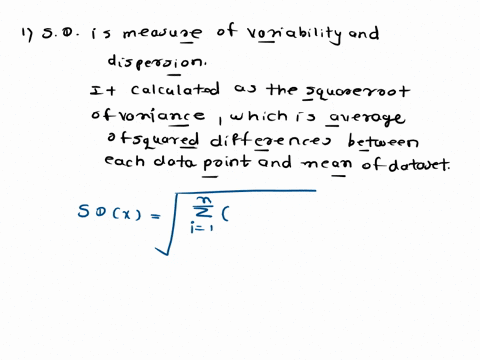 1) S.D. is measure of variability and
dispersion.
It calculated as the squareroot
of variance, which is average
of squared differences between
each data point and mean of dataset.
SD(x) = √ n Σ i=1 (